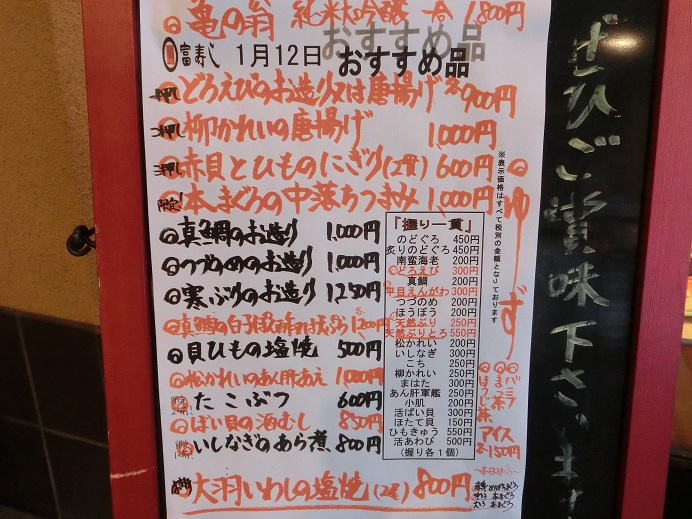 ◎亀の翁 純米大吟醸 一合 1,800円
富寿し 1月12日 おすすめ品
一押し ◎どろえびのお造り又は唐揚げ 各900円
二押し ◎柳かれいの唐揚げ 1,000円
三押し ◎赤貝とひものにぎり(2貫) 600円
限定 ◎本まぐろの中落ちつまみ 1,000円
◎真鯛のお造り 1,000円
◎つづめのお造り 1,000円
◎寒ぶりのお造り 1250円
◎真鱈の白子 1200円
◎貝ひもの塩焼 500円
◎松かれいのあん肝あえ 1,000円
たこぶつ 600円
◎ばい貝の酒むし 850円
◎いしなぎのあら煮 800円
◎大羽いわしの塩焼(2尾) 800円
『握り一貫』
のどぐろ 450円
炙りのどぐろ 450円
南蛮海老 200円
◎どろえび 300円
真鯛 200円
◎平目えんがわ 300円
つつのめ 200円
ほうぼう 200円
◎天然ぶり 250円
天然ぶりとろ 550円
松かれい 200円
いしなぎ 300円
こち 250円
柳かれい 200円
まはた 300円
あん肝軍艦 250円
小肌 200円
活ばい貝 300円
ほたて貝 150円
ひもきゅう 550円
活あわび 500円
(握り各1個)
※表示価格はすべて税別の金額となっております
◎ゆず
◎バニラ
◎まっ茶
◎ほうじ茶
アイス
各150円
本まぐろ
ぜひご賞味下さいませ